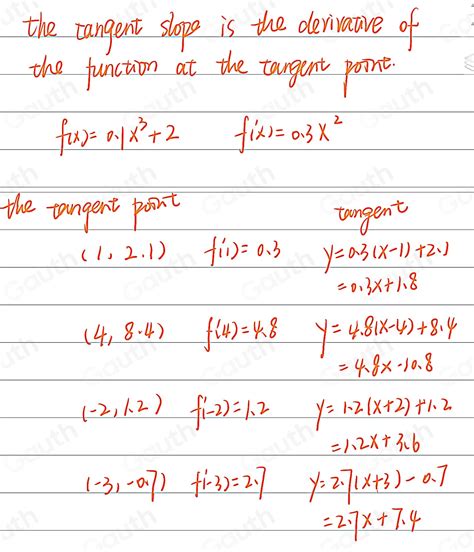 the tangent slope is the derivative of
the function at the tangent point.
f(x)=0.1x³+2 f'(x)=0.3x²
the tangent point tangent
(1, 2.1) f'(1)=0.3 y=0.3(x-1)+2.1
=0.3x+1.8
(4, 8.4) f'(4)=4.8 y=4.8(x-4)+8.4
=4.8x-10.8
(-2, 1.2) f'(-2)=1.2 y=1.2(x+2)+1.2
=1.2x+3.6
(-3, -0.7) f'(-3)=2.7 y=2.7(x+3)-0.7
=2.7x+7.4
Gauth